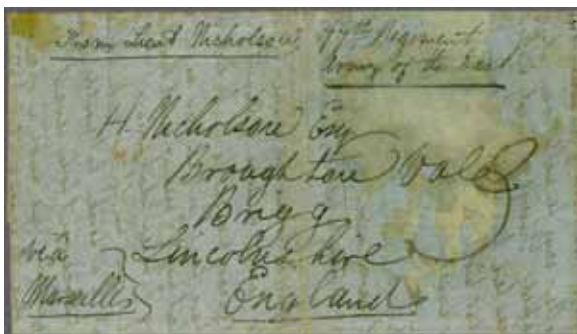 From Lieut Nicholson, 97th Regiment
Army of the East
H. Nicholson Esq
Broughton Vale
Brigg
Lincolnshire
England
via
Marseilles